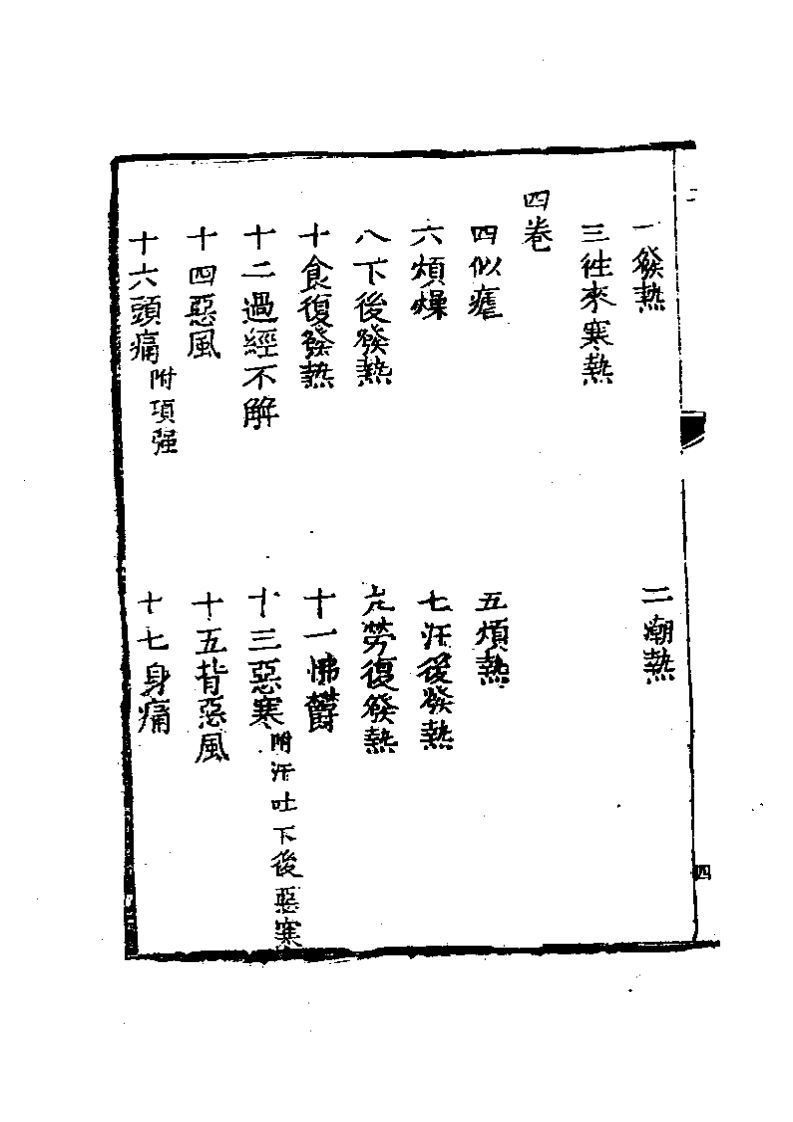 一發熱　二潮熱
三徃來寒熱
四卷
四似瘧　五煩熱
六煩燥　七汗後發熱
八下後發熱　九勞復發熱
十食復發熱　十一怫鬱
十二過經不解　十三惡寒附汗吐下後惡寒
十四惡風　十五背惡風
十六頭痛附項强　十七身痛
四